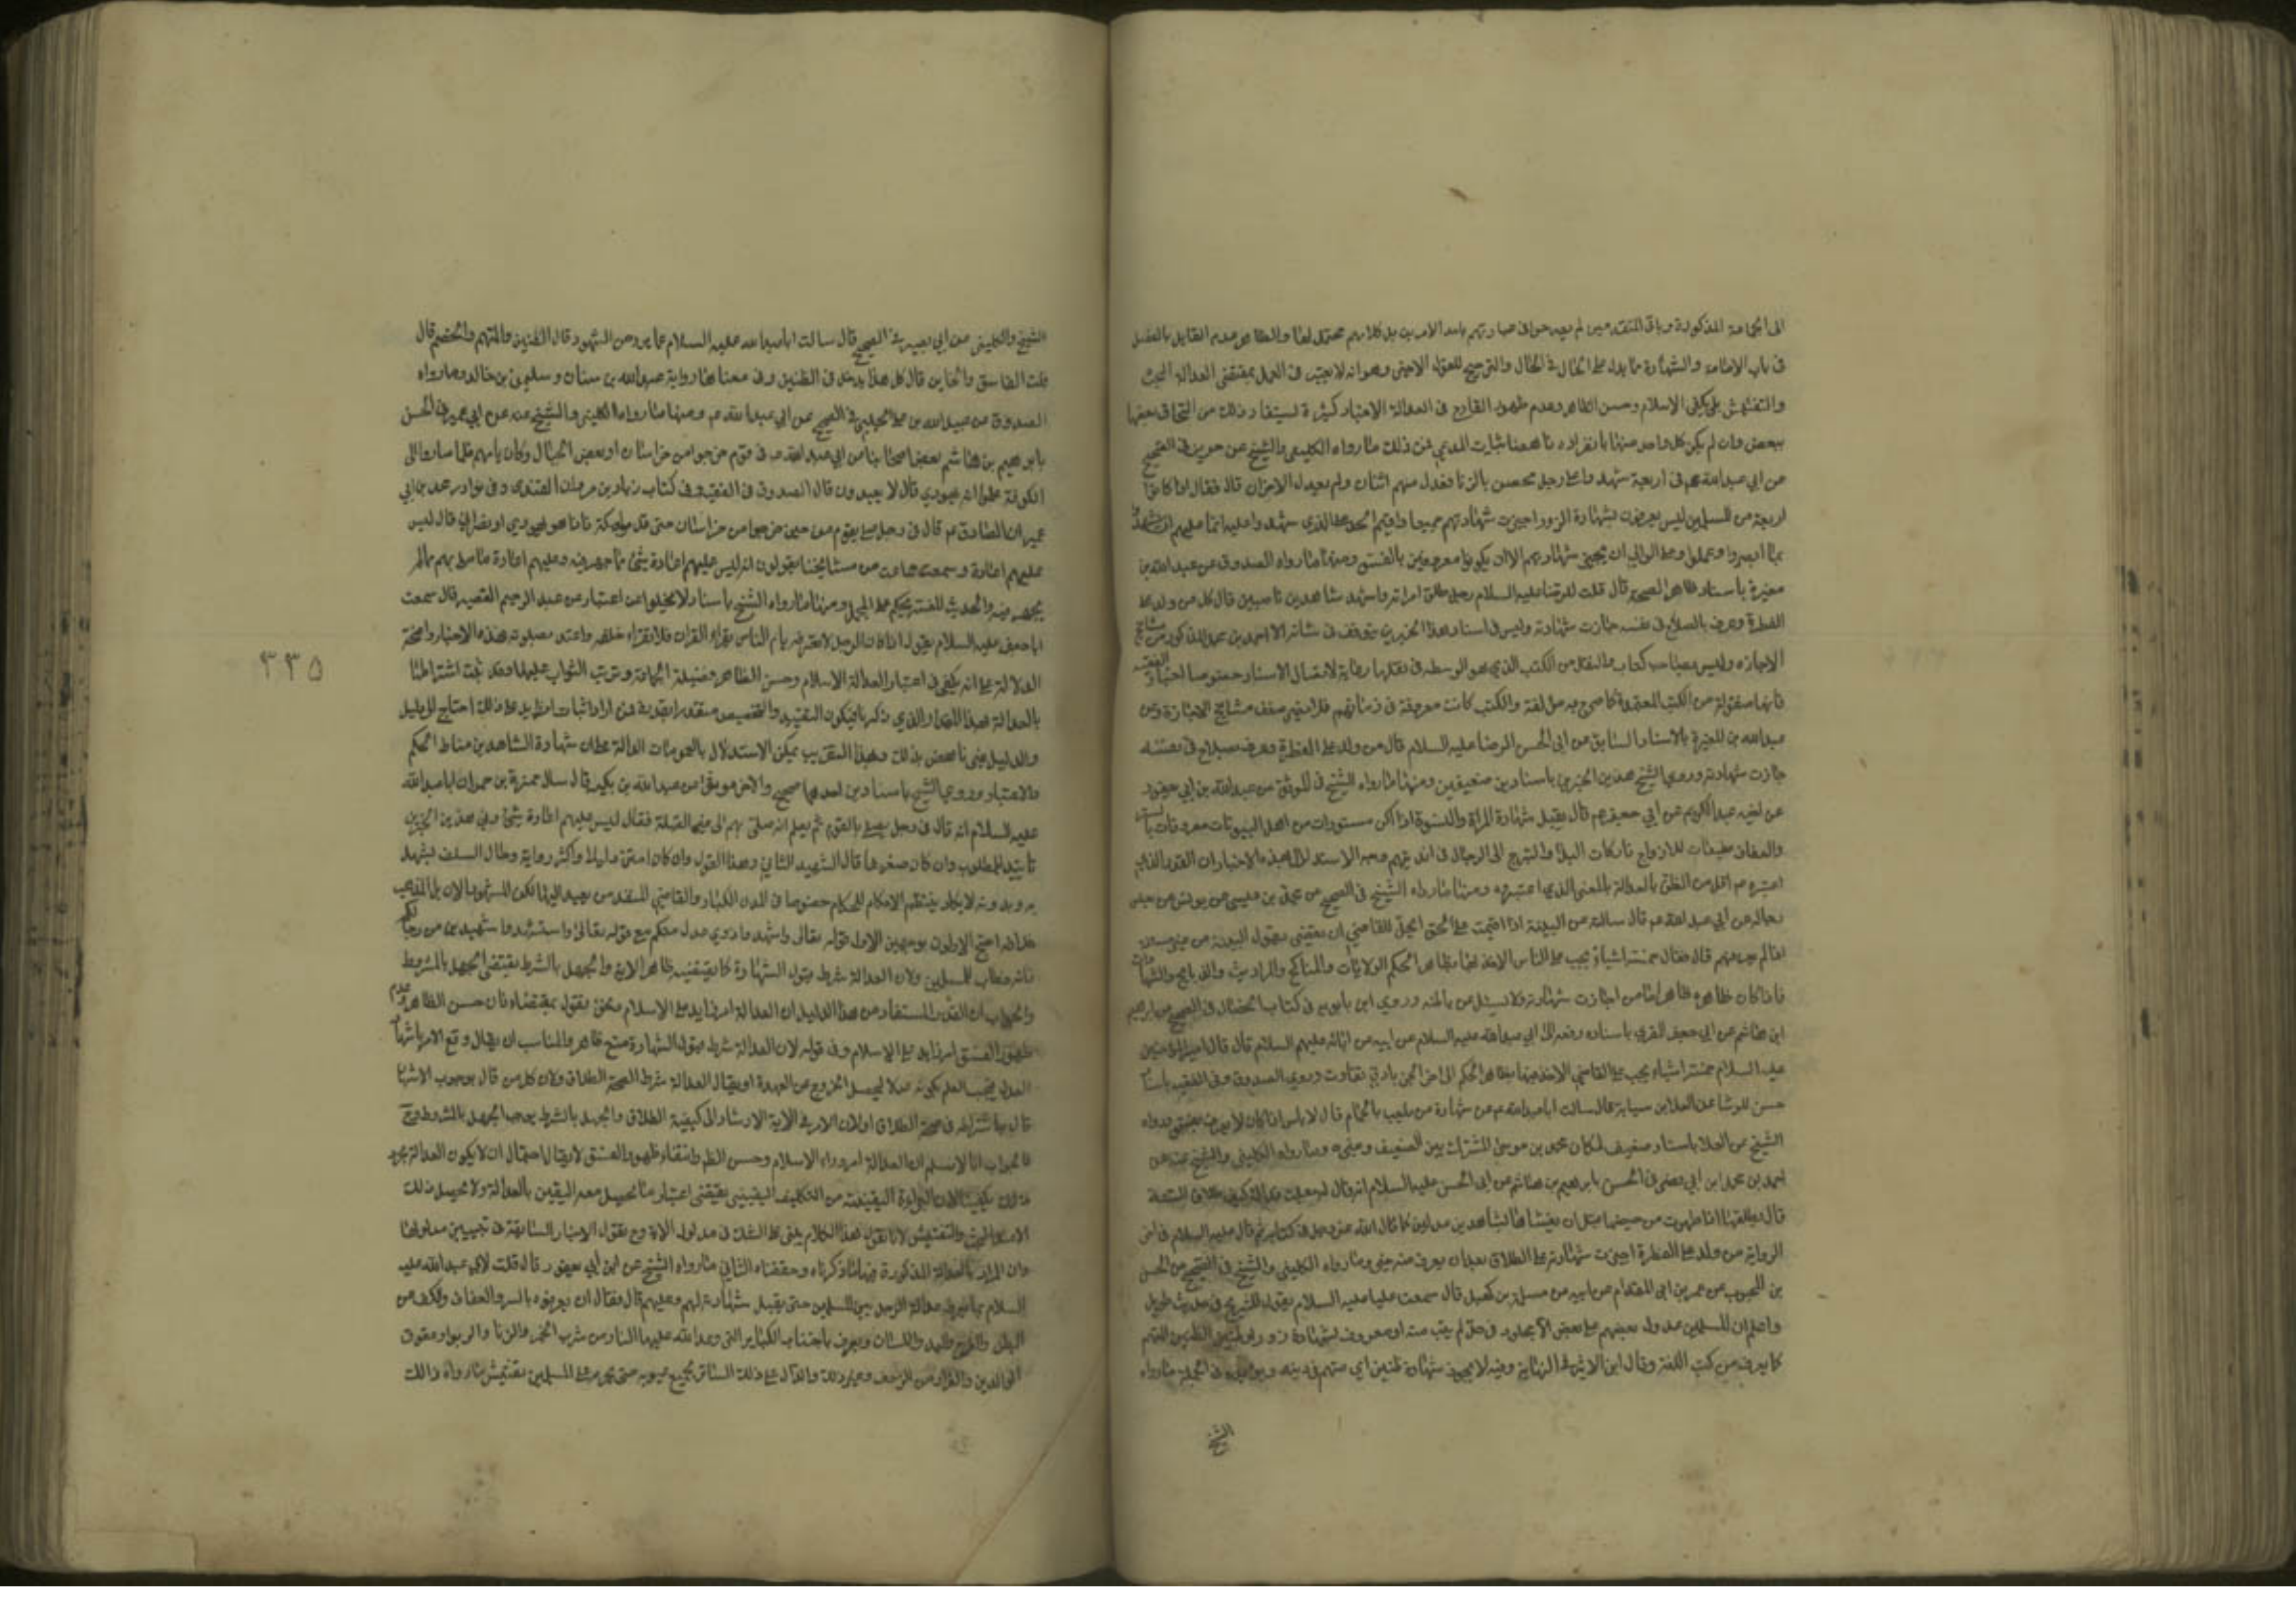 الى الجماعة المذكورة وباقي المتقدمين لم يصرحوا في عباراتهم باحد الامرين بل كلامهم محتمل لهما والظاهر عدم القايل بالفصل
في باب الامامة والشهادة مما يدل على الحال في الحال والترجيح للقول الاخير وهو انه لا يجب في العمل بمقتضى العدالة البحث
والتفتيش بل يكفى الاسلام وحسن الظاهر وعدم ظهور القادح في العدالة لاخبار كثيرة يستفاد ذلك من التحاق بعضها
ببعض وان لم يكن كل واحد منها بانفراده ناهضا باثبات المدعى فمن ذلك ما رواه الكليني والشيخ عن حريز في الصحيح
عن ابي عبد الله عم في اربعة شهدوا على رجل محصن بالزنا فعدل منهم اثنان ولم يعدل الاخران قال فقال اذا كانوا
اربعة من المسلمين ليس يعرفون بشهادة الزور اجيزت شهادتهم جميعا واقيم الحد على الذي شهدوا عليه انما عليهم ان يشهدوا
بما ابصروا وعلموا وعلى الوالي ان يجيز شهادتهم الا ان يكونوا معروفين بالفسق ومنها ما رواه الصدوق عن عبد الله بن
مغيرة باسناد ظاهر الصحة قال قلت للرضا عليه السلام رجل طلق امراته واشهد شاهدين ناصبين قال كل من ولد على
الفطرة وعرف بالصلاح في نفسه جازت شهادته وليس في اسناد هذا الخبر من يتوقف في شانه الا احمد بن محمد المذكور من مشايخ
الاجازة وليس بصاحب كتاب والنقل من الكتب الذي هو الواسطة في نقلها رعاية لاتصال الاسناد خصوصا اخبار الفقيه
فانها منقولة من الكتب المعتمدة كما صرح به مؤلفه والكتب كانت معروفة في زمانهم فلا يضر ضعف مشايخ الاجازة وعن
عبد الله بن المغيرة بالاسناد السابق عن ابي الحسن الرضا عليه السلام قال من ولد على الفطرة وعرف بصلاح في نفسه
جازت شهادته وروى الشيخ هذين الخبرين باسنادين ضعيفين ومنها ما رواه الشيخ في الموثق عن عبد الله بن ابي يعفور
عن اخيه عبد الكريم عن ابي جعفر عم قال يقبل شهادة المراة والنسوة اذا كن مستورات من اهل البيوتات معروفات بالستر
والعفاف مطيعات للازواج تاركات البذا والتبرج الى الرجال في انديتهم وجه الاستدلال بهذه الاخبار ان القدر الذي
اعتبره عم اقل من الظن بالعدالة بالمعنى الذي اعتبروه ومنها ما رواه الشيخ في الصحيح عن محمد بن عيسى عن يونس عن بعض
رجاله عن ابي عبد الله عم قال سالته عن البينة اذا اقيمت على الحق ايحل للقاضي ان يقضي بقول البينة من غير مسالة
اذا لم يعرفهم قال فقال خمسة اشياء يجب على الناس الاخذ بها بظاهر الحكم الولايات والمناكح والمواريث والذبايح والشهادات
فاذا كان ظاهره ظاهرا مامونا اجازت شهادته ولا يسئل عن باطنه وروى ابن بابويه في كتاب الخصال في الصحيح عن ابراهيم
ابن هاشم عن ابي جعفر المقري باسناده رفعه الى ابي عبد الله عليه السلام عن ابيه عن ابائه عليهم السلام قال قال امير المؤمنين
عليه السلام خمسة اشياء يجب على القاضي الاخذ فيها بظاهر الحكم الى اخر الخبر بادنى تفاوت وروى الصدوق في الفقيه باسناد
حسن للوشا عن العلا بن سيابة قال سالت ابا عبد الله عم عن شهادة من يلعب بالحمام قال لا باس اذا كان لا يعرف بفسق ورواه
الشيخ عن العلا باسناد ضعيف لمكان محمد بن موسى المشترك بين الضعيف وغيره وما رواه الكليني والشيخ عنه عن
احمد بن محمد ابن ابي نصر في الحسن بابراهيم بن هاشم عن ابي الحسن عليه السلام انه قال له
قال يطلقها اذا طهرت من حيضها قبل ان يغشاها بشاهدين عدلين كما قال الله عز وجل في كتابه ثم قال عليه السلام في اخر
الرواية من ولد على الفطرة اجيزت شهادته على الطلاق بعد ان يعرف منه خير وما رواه الكليني والشيخ في الصحيح عن الحسن
بن المحبوب عن عمرو بن ابي المقدام عن ابيه عن سلمة بن كهيل قال سمعت عليا عليه السلام يقول لشريح في حديث طويل
واعلم ان المسلمين عدول بعضهم على بعض الا مجلود في حد لم يتب منه او معروف بشهادة زور او ظنين الظنين المتهم
كما يعرف من كتب اللغة وقال ابن الاثير في النهاية وفيه لا يجوز شهادة ظنين اي متهم في دينه ويؤيده في الجملة ما رواه
الشيخ
الشيخ والكليني عن ابي بصير في الصحيح قال سالت ابا عبد الله عليه السلام عما يرد من الشهود قال الظنين والمتهم والخصم قال
قلت الفاسق والخاين قال كل هذا يدخل في الظنين وفي معناها رواية عبد الله بن سنان وسليمن بن خالد وما رواه
الصدوق عن عبيد الله بن علي الحلبي في الصحيح عن ابي عبد الله عم ومنها ما رواه الكليني والشيخ عنه عن ابن ابي عمير في الحسن
بابرهيم بن هاشم عن بعض اصحابنا عن ابي عبد الله عم في قوم خرجوا من خراسان او بعض الجبال وكان يامهم فلما صاروا الى
الكوفة علموا انه يهودي قال لا يعيدون قال الصدوق في الفقيه وفي كتاب زياد بن مروان القندي وفي نوادر محمد بن ابي
عمير ان الصادق عم قال في رجل صلى بقوم من حين خرجوا من خراسان حتى قدموا مكة فاذا هو يهودي او نصراني قال ليس
عليهم اعادة وسمعت جماعة من مشايخنا يقولون انه ليس عليهم اعادة شئ مما جهر فيه وعليهم اعادة ما صلى بهم مما لم
يجهر فيه والحديث المفسر يحكم على المجمل ومنها ما رواه الشيخ باسناد لا يخلوا عن اعتبار عن عبد الرحيم القصير قال سمعت
ابا جعفر عليه السلام يقول اذا كان الرجل لا تعرفه يام الناس يقراء القران فلا تقراء خلفه واعتد بصلوته فهذه الاخبار واضحة
الدلالة على انه يكفي في اعتبار العدالة الاسلام وحسن الظاهر وفضيلة الجماعة وترتب الثواب عليها وقد ثبت اشتراطها
بالعدالة فهذا المقدار الذي ذكرنا فيكون التقييد والتخصيص مقتصرا بقدره فمن اراد اثبات امر زايد على ذلك احتاج الى دليل
والدليل غير ناهض بذلك وبهذا التقريب يمكن الاستدلال بالعمومات الدالة على ان شهادة الشاهدين مناط الحكم
والاعتبار وروى الشيخ باسنادين احدهما صحيح والاخر موثق عن عبد الله بن بكير قال سال حمزة بن حمران ابا عبد الله
عليه السلام انه قال في رجل يصلي بالقوم ثم يعلم انه صلى بهم الى غير القبلة فقال ليس عليهم اعادة شئ وفي هذين الخبرين
تاييد للمطلوب وان كان صغيرها قال الشهيد الثاني وهذا القول وان كان امتن دليلا واكثر رواية وحال السلف يشهد
به وبدونه لا يكاد ينتظم الاحكام للحكام خصوصا في المدن الكبار والقاضي المنفذ من بعيد اليها لكن المشهور الان بل المذهب
خلافه احتج الاولون بوجهين الاول قوله تعالى واشهدوا ذوي عدل منكم مع قوله تعالى واستشهدوا شهيدين من رجالكم
فانه خطاب للمسلمين ولان العدالة شرط قبول الشهادة كما يقتضيه ظاهر الاية والجهل بالشرط يقتضي الجهل بالمشروط
والجواب ان القدر المستفاد من هذا الدليل ان العدالة امر زايد على الاسلام ونحن نقول بمقتضاه فان حسن الظاهر وعدم
ظهور الفسق امر زايد على الاسلام وفي قوله لان العدالة شرط قبول الشهادة منع ظاهر والمناسب ان يقال وقع الامر باشهاد
العدل فيجب العلم بكونه عدلا ليحصل الخروج عن العهدة او يقال العدالة شرط لصحة الطلاق ولان كل من قال بوجوب الاشهاد
قال باشتراطه في صحة الطلاق اولان الامر في الاية الارشاد الى كيفية الطلاق والجهل بالشرط يوجب الجهل بالمشروط وح
فالجواب انا لا نسلم ان العدالة امر وراء الاسلام وحسن الظاهر وانتفاء ظهور الفسق لا يقال احتمال ان لا يكون العدالة مجرد
ذلك يكفينا لان البراءة اليقينية من التكليف اليقيني يقتضي اعتبار ما يحصل معه اليقين بالعدالة ولا يحصل ذلك
الا مع البحث والتفتيش لانا نقول هذا الكلام يبنى على الشك في مدلول الاية وح نقول الاخبار السابقة في تبيين مدلولها
وان المراد بالعدالة المذكورة فيها ما ذكرناه وحققناه الثاني ما رواه الشيخ عن ابن ابي يعفور قال قلت لابي عبد الله عليه
السلام بما يعرف عدالة الرجل بين المسلمين حتى يقبل شهادته لهم وعليهم قال فقال ان يعرفوه بالستر والعفاف والكف عن
البطن والفرج واليد واللسان ويعرف باجتناب الكباير التي وعد الله عليها النار من شرب الخمر والزنا والربوا وعقوق
الوالدين والفرار من الزحف وغير ذلك والدال على ذلك الساتر لجميع عيوبه حتى يحرم على المسلمين تفتيش ما وراء ذالك
٣٣٥